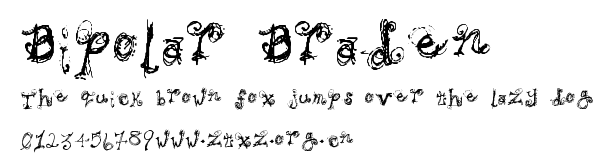 Bipolar Braden
The quick brown fox jumps over the lazy dog
0123456789www.ztxz.org.cn